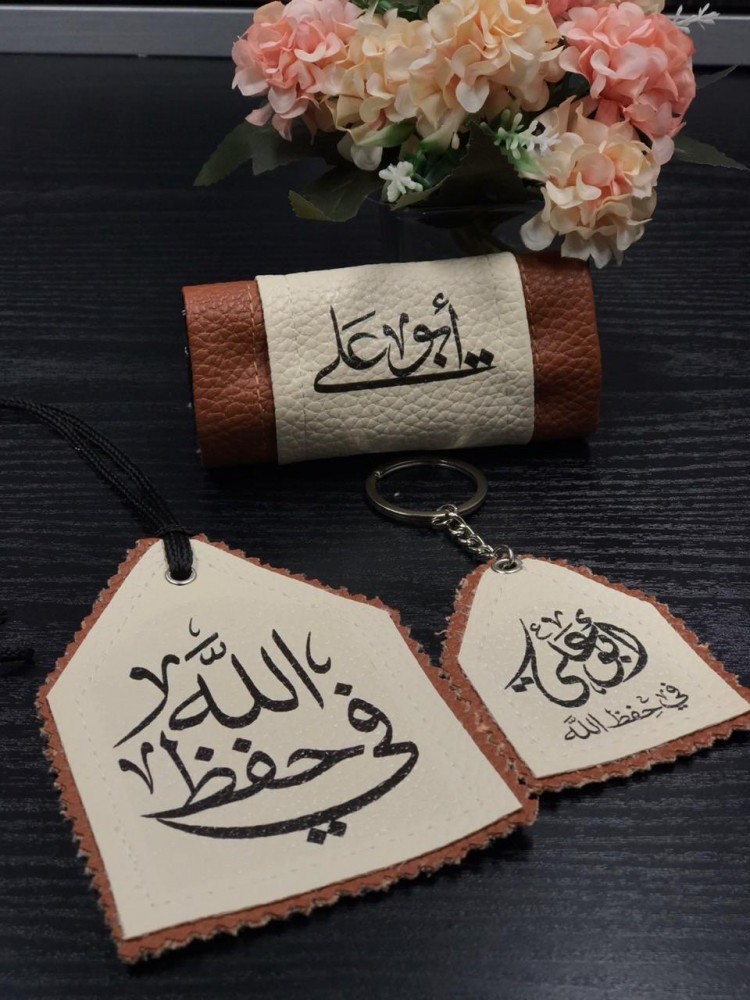 أبو علي
في حفظ الله
أبو علي
في حفظ الله